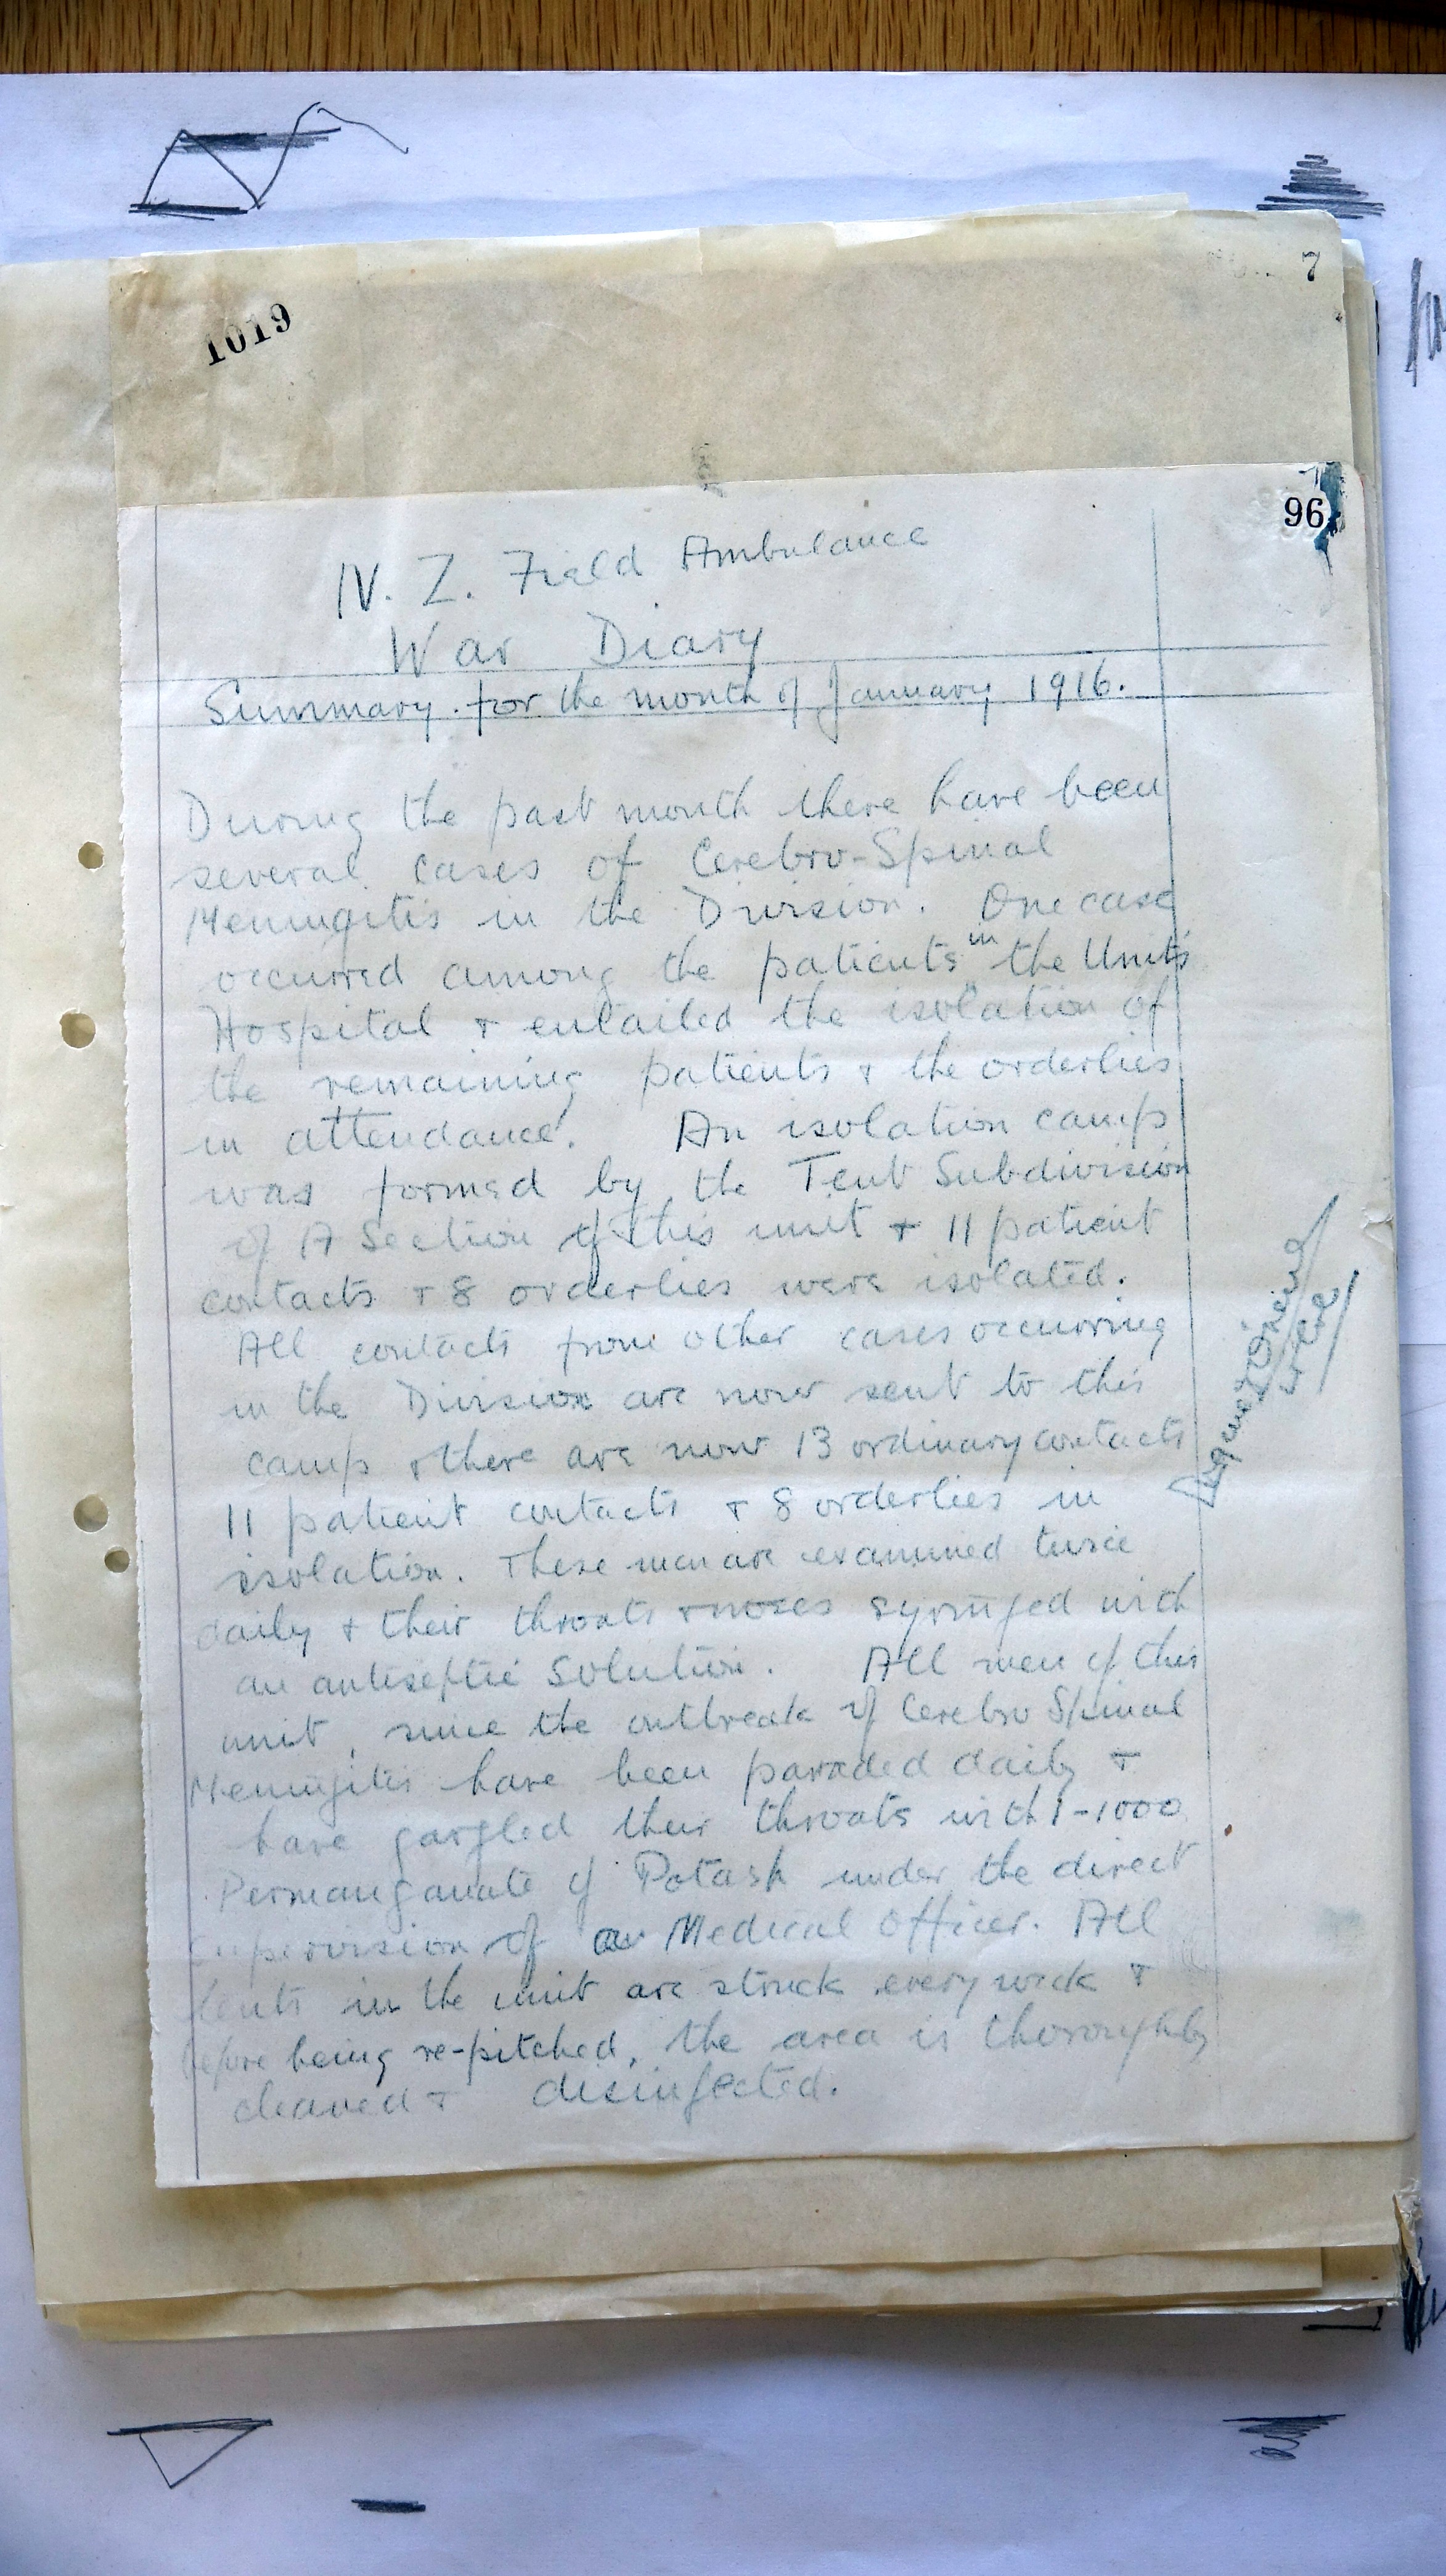 7
1019
96
N. Z. Field Ambulance
War Diary
Summary for the month of January 1916.
During the past month there have been
several cases of Cerebro-Spinal
Meningitis in the Division. One case
occurred among the patients in the Units
Hospital & entailed the isolation of
the remaining patients & the orderlies
in attendance. An isolation camp
was formed by the Tent Subdivision
of A Section of this unit & 11 patient
contacts & 8 orderlies were isolated.
All contacts from other cases occurring
in the Division are now sent to this
camp & there are now 13 ordinary contacts
11 patient contacts & 8 orderlies in
isolation. These men are examined twice
daily & their throats & noses syringed with
an antiseptic solution. All men of this
unit, since the outbreak of Cerebro Spinal
Meningitis have been paraded daily &
have gargled their throats with 1-1000
Permanganate of Potash under the direct
supervision of a Medical Officer. All
tents in the unit are struck every week &
before being re-pitched, the area is thoroughly
cleaned & disinfected.